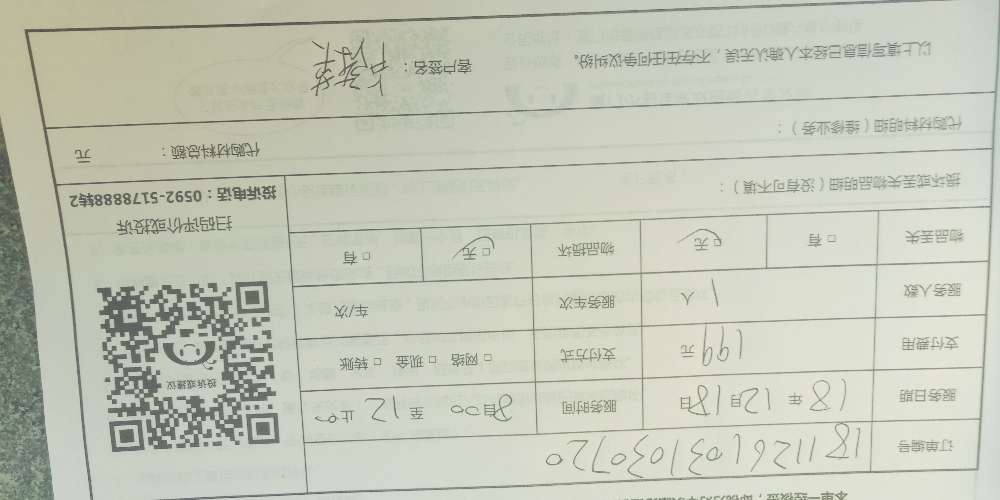 订单编号 181126103103010720
服务日期 18年12月18日 服务时间 8:00至12止
支付费用 199元 支付方式 □ 网络 □ 现金 □ 转账
服务人数 1人 服务车次 车/次
物品丢失 □ 有 □ 无 物品损坏 □ 无 □ 有
投诉或建议
扫码评价或投诉
投诉电话：0592-5178888转2
损坏或丢失物品明细（没有可不填）：
代购材料明细（维修业务）：
代购材料总额： 元
以上填写信息已经本人确认无误，不存在任何争议纠纷。 客户签名：